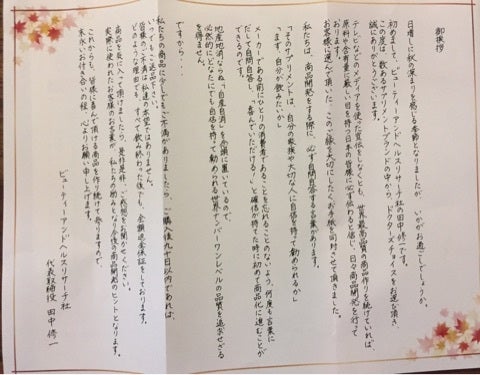 御挨拶
日増しに秋の深まりを感じる季節となりましたが いかがお過ごしでしょうか。
初めまして、ビューティーアンドヘルスリサーチ社の田中修一です。
この度は、数あるサプリメントブランドの中から ドクターズチョイスをお選び頂き、
誠にありがとうございます。
テレビなどのメディアを使った宣伝をしなくとも、世界最高品質の商品作りを続けていれば、
原料や含有量に厳しい目を持つ日本の皆様に必ず伝わると信じ、日々商品開発を行って
おります。
お客様に選んで頂いた、このご縁を大切にしたくお手紙を同封させて頂きました。
私たちは、商品開発をする際に、必ず自問自答する言葉があります。
「そのサプリメントは、自分の家族や大切な人に自信を持って勧められるか」
「まず、自分が飲みたいか」
メーカーである前にひとりの消費者であることを忘れることのないよう、何度も言葉に
だして自問自答し、「喜んでいただける！」と確信が持てた時に初めて商品化に進むことが
できるのです。
地産地消ならぬ「自産自消」を念頭に置いているので、
必然的にどなたにでも自信を持って勧められる世界ナンバーワンレベルの品質を追求せざる
を得ません。
ですから・・・
私たちの商品に少しでもご不満がありましたら、ご購入後九十日以内であれば、
いつでもご返品ください。
皆様のご不満は、私達の本望ではありません。
どのような理由でも、すべて飲み終わった後でも、全額返金保証をしております。
商品を気に入って頂けましたら、是非是非、ご感想をお聞かせください。
実際に使われたお客様のお言葉が、私たちの励みとなり今後の商品開発のヒントとなります。
これからも、皆様に喜んで頂ける商品を作り続けて参りますので
末永いお付き合いの程、心よりお願い申し上げます。
ビューティーアンドヘルスリサーチ社
代表取締役 田中 修一